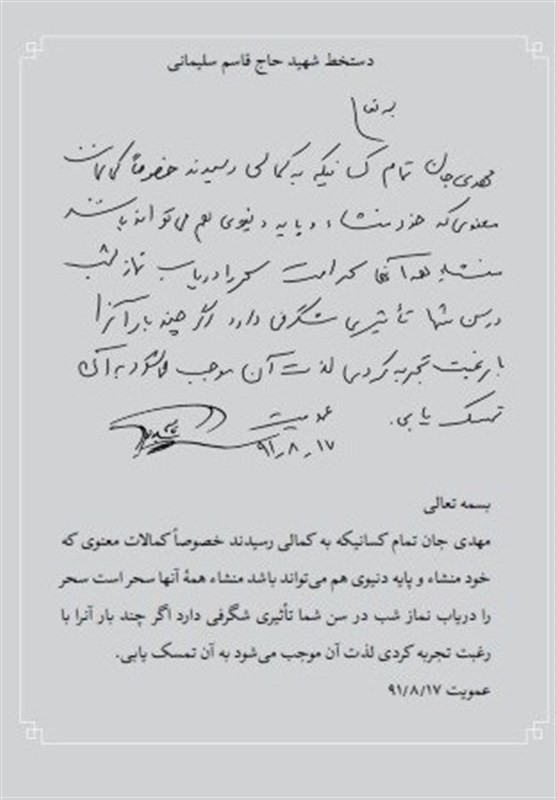 دستخط شهید حاج قاسم سلیمانی
مهدی جان تمام کسانیکه به کمالی رسیدند خصوصاً کمالات
معنوی که خود منشاء و پایه دنیوی هم می‌تواند باشد
منشاء همه آنها سحر است سحر را دریاب نماز شب
در سن شما تأثیری شگرفی دارد اگر چند بار آنرا
با رغبت تجربه کردی لذت آن موجب می‌شود به آن
تمسک یابی.
عمویت
۹۱ـ۸ـ۱۷
بسمه تعالی
مهدی جان تمام کسانیکه به کمالی رسیدند خصوصاً کمالات معنوی که
خود منشاء و پایه دنیوی هم می‌تواند باشد منشاء همهٔ آنها سحر است سحر
را دریاب نماز شب در سن شما تأثیری شگرفی دارد اگر چند بار آنرا با
رغبت تجربه کردی لذت آن موجب می‌شود به آن تمسک یابی.
عمویت ۹۱/۸/۱۷